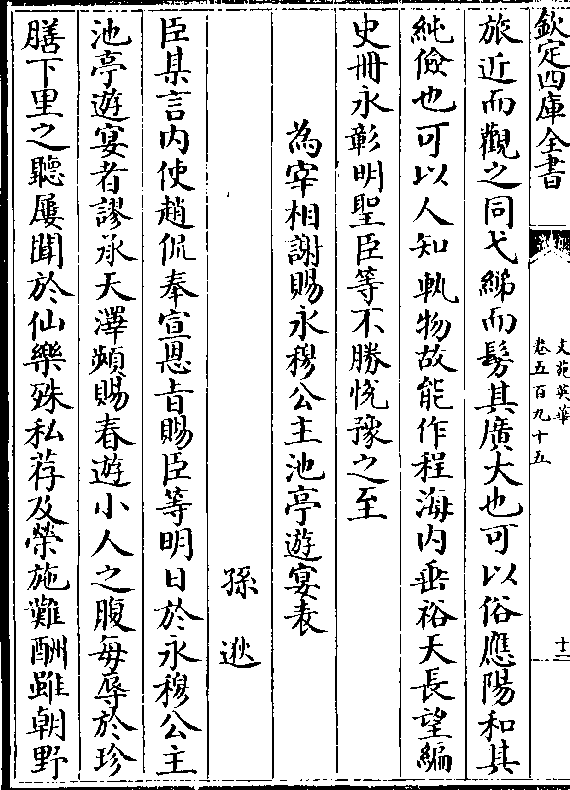 欽定四庫全書
文苑英華
卷五百九十五
十二
旅近而觀之同弋綈而髣其廣大也可以俗應陽和其
純儉也可以人知軌物故能作程海内垂裕天長望編
史冊永彰明聖臣等不勝悦豫之至
為宰相謝賜永穆公主池亭遊宴表
孫逖
臣某言内使趙侃奉宣恩旨賜臣等明日於永穆公主
池亭遊宴者謬承天澤頻賜春遊小人之腹每辱於珍
膳下里之聽屢聞於仙樂殊私荐及榮施難酬雖朝野